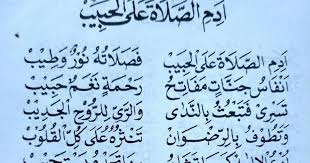 اَدِمِ الصَّلَاةَ عَلَى الْحَبِيْبِ
اَدِمِ الصَّلَاةَ عَلَى الْحَبِيْبِ فَصَلَاتُهُ نُوْرٌ وَطِيْبْ
اَنْفَاسُ جَنَّاتٍ مَفَاتِحْ رَحْمَةٍ نَغَمٌ حَبِيْبْ
تَسْرِى فَتَبْعَثُ بِالنَّدَى وَالرِّيِّ لِلرُّوْحِ الْجَدِيْبْ
وَتَطُوْفُ بِالرِّضْوَانِ تَنْثُرُهُ عَلَى كُلِّ الْقُلُوْبْ